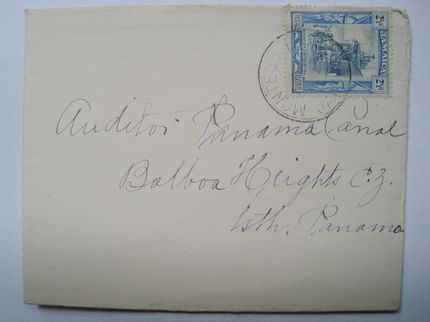 JAMAICA
2½ 2½
MONTEGO
Auditor Panama Canal
Balboa Heights C.Z.
Isth, Panama